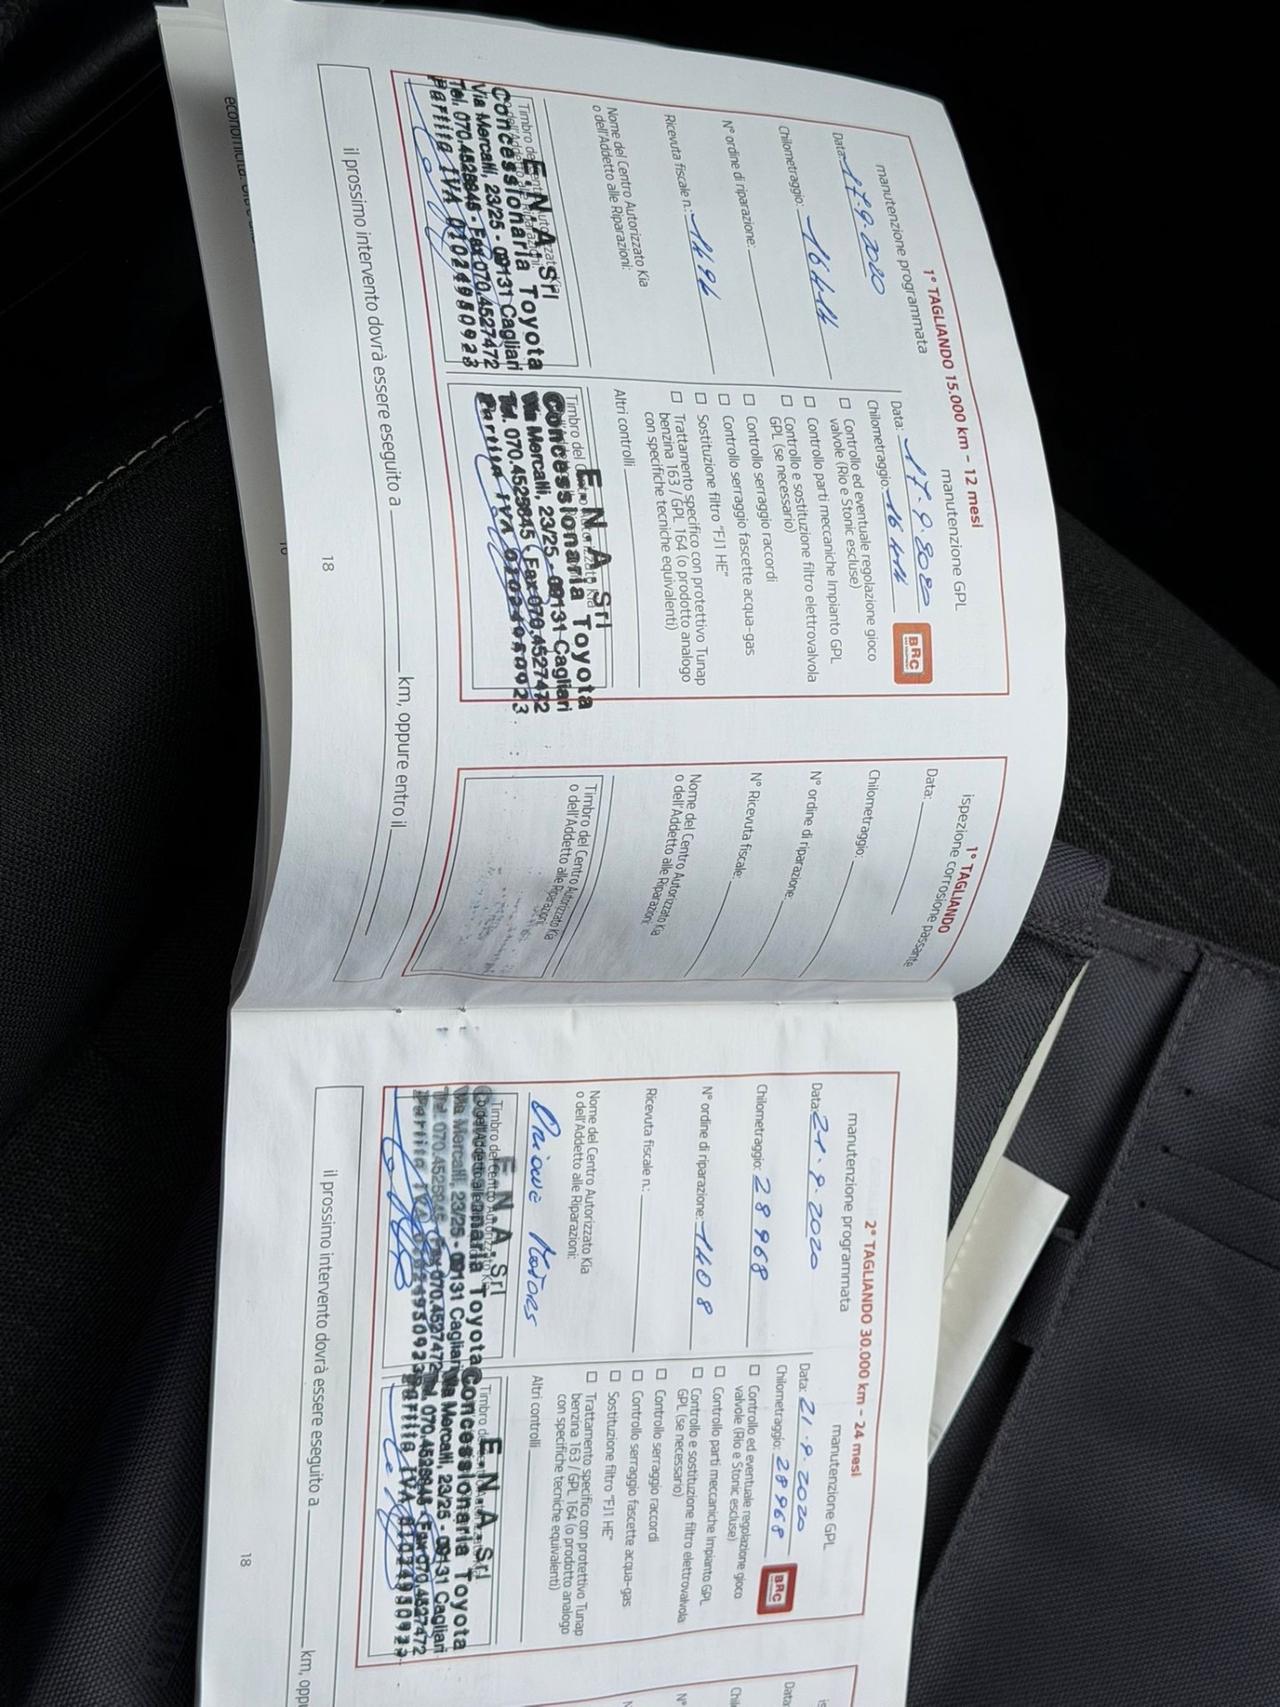 1° TAGLIANDO 15.000 km - 12 mesi
manutenzione programmata
Data: 17.9.2020
Chilometraggio:
N° ordine di riparazione:
Ricevuta fiscale n.:
Nome del Centro Autorizzato Kia
o dell'Addetto alle Riparazioni:
E.N.A. Srl
Concessionaria Toyota
Via Mercalli, 23/25 - 09131 Cagliari
Fax 070.4527472
Partita IVA
manutenzione GPL
Data: 17.9.2020
Chilometraggio:
BRC
Controllo ed eventuale regolazione gioco
valvole (Rio e Stonic escluse)
Controllo parti meccaniche Impianto GPL
Controllo e sostituzione filtro elettrovalvola
GPL (se necessario)
Controllo serraggio raccordi
Controllo serraggio fascette acqua-gas
Sostituzione filtro "FJ1 HE"
Trattamento specifico con protettivo Tunap
benzina 163 / GPL 164 (o prodotto analogo
con specifiche tecniche equivalenti)
Altri controlli
Timbro del
E.N.A. Srl
Concessionaria Toyota
Via Mercalli, 23/25 - 09131 Cagliari
Tel. 070.4529845 - Fax 070.4527472
Partita IVA
1° TAGLIANDO
ispezione corrosione passante
Data:
Chilometraggio:
N° ordine di riparazione:
N° Ricevuta fiscale:
Nome del Centro Autorizzato Kia
o dell'Addetto alle Riparazioni:
Timbro del Centro Autorizzato Kia
o dell'Addetto alle Riparazioni:
il prossimo intervento dovrà essere eseguito a km, oppure entro il
18
2° TAGLIANDO 30.000 km - 24 mesi
manutenzione programmata
Data: 21.9.2020
Chilometraggio: 28968
N° ordine di riparazione: 1408
Ricevuta fiscale n.:
Nome del Centro Autorizzato Kia
o dell'Addetto alle Riparazioni:
Motors
E.N.A. Srl
Toyota
Via Mercalli, 23/25 - 09131 Cagliari
manutenzione GPL
Data: 21.9.2020
Chilometraggio: 28968
BRC
Controllo ed eventuale regolazione gioco
valvole (Rio e Stonic escluse)
Controllo parti meccaniche Impianto GPL
Controllo e sostituzione filtro elettrovalvola
GPL (se necessario)
Controllo serraggio raccordi
Controllo serraggio fascette acqua-gas
Sostituzione filtro "FJ1 HE"
Trattamento specifico con protettivo Tunap
benzina 163 / GPL 164 (o prodotto analogo
con specifiche tecniche equivalenti)
Altri controlli
E.N.A. Srl
Concessionaria Toyota
Via Mercalli, 23/25 - 09131 Cagliari
Fax 070.4527472
Partita IVA
il prossimo intervento dovrà essere eseguito a km,
18